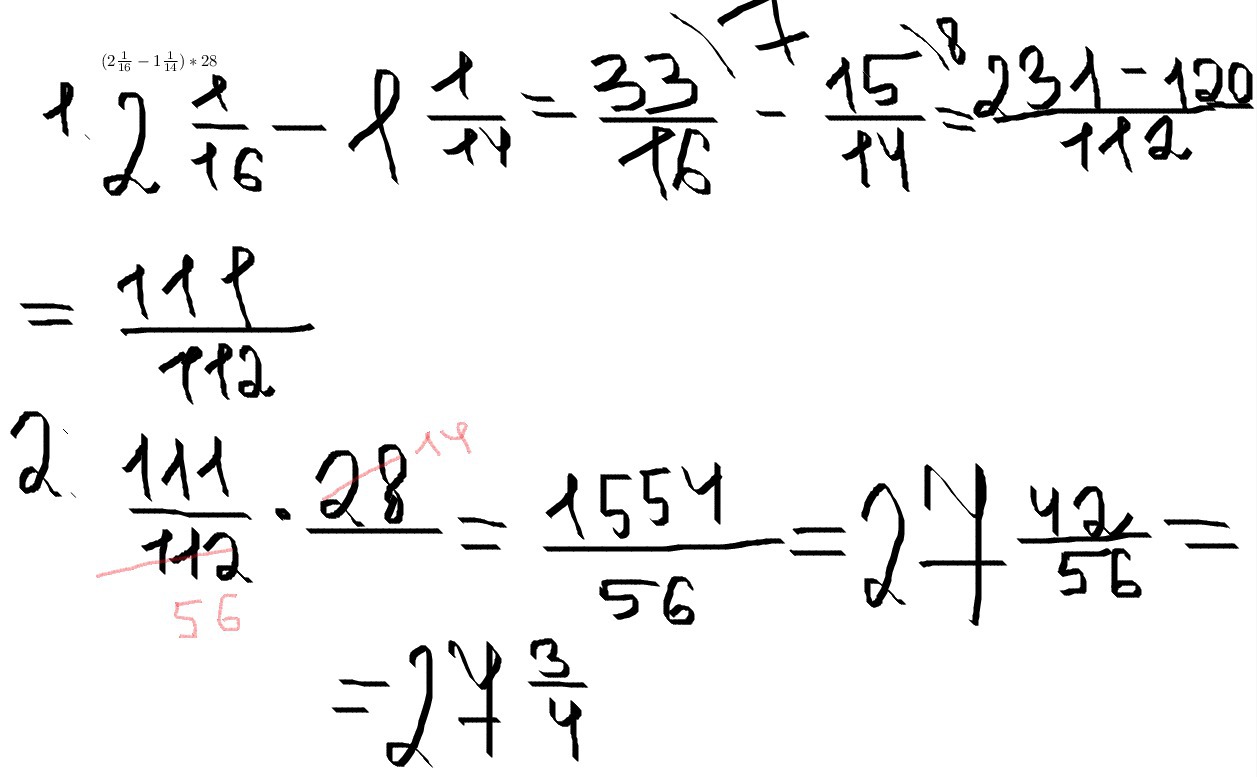 (2 1/16 − 1 1/14) * 28
1. 2 1/16 − 1 1/14 = 33/16 \7 − 15/14 \8 = 231 − 120/112
= 111/112
2. 111/112 · 28 14 = 1554/56 = 27 42/56 =
56
= 27 3/4